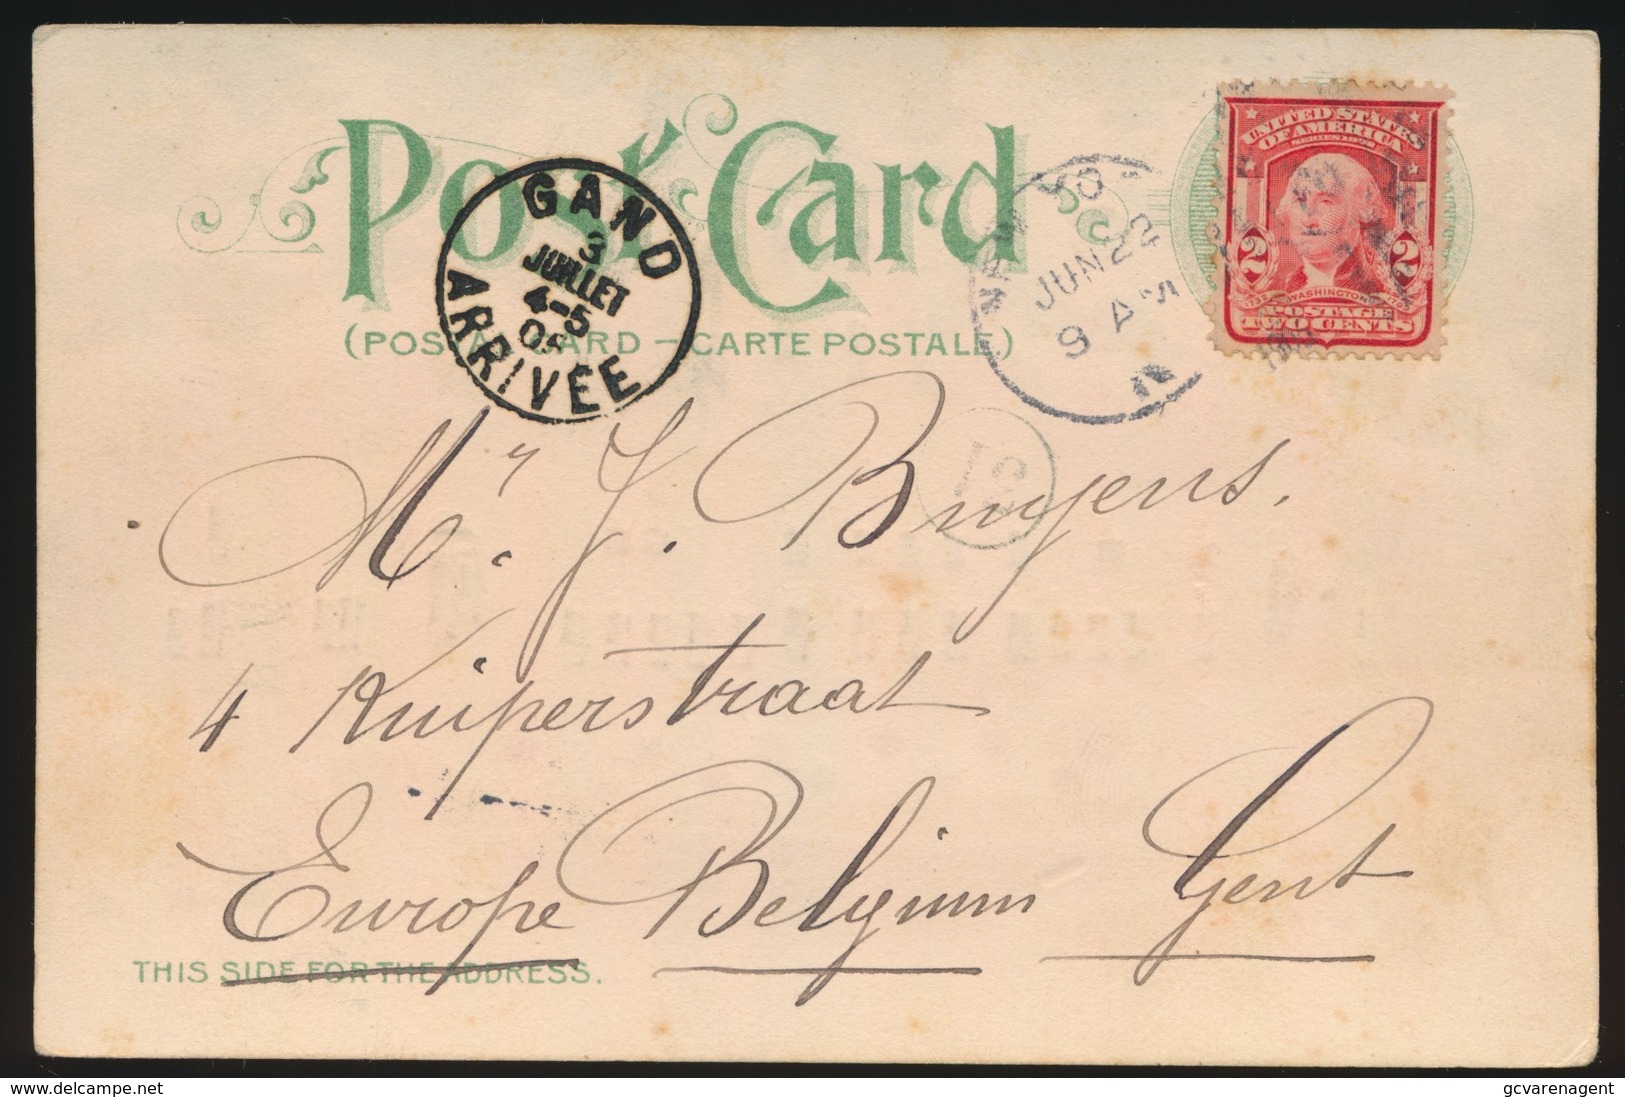 Post Card
(POSTAL CARD — CARTE POSTALE.)
GAND
3
JUILLET
4-5
ARRIVÉE
NEW YO
JUN 22
9 A
UNITED STATES
OF AMERICA
2 2
1732 WASHINGTON
POSTAGE
TWO CENTS
51
Mr. J. Buyens.
4 Kuiperstraat
Europe Belgium Gent
THIS SIDE FOR THE ADDRESS.
delcampe.net
gcvarenagent